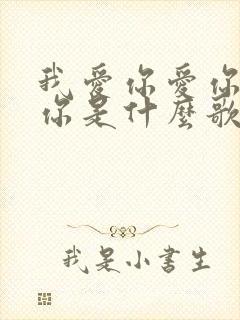 我愛你愛你
你是什麼歌
我是小書生